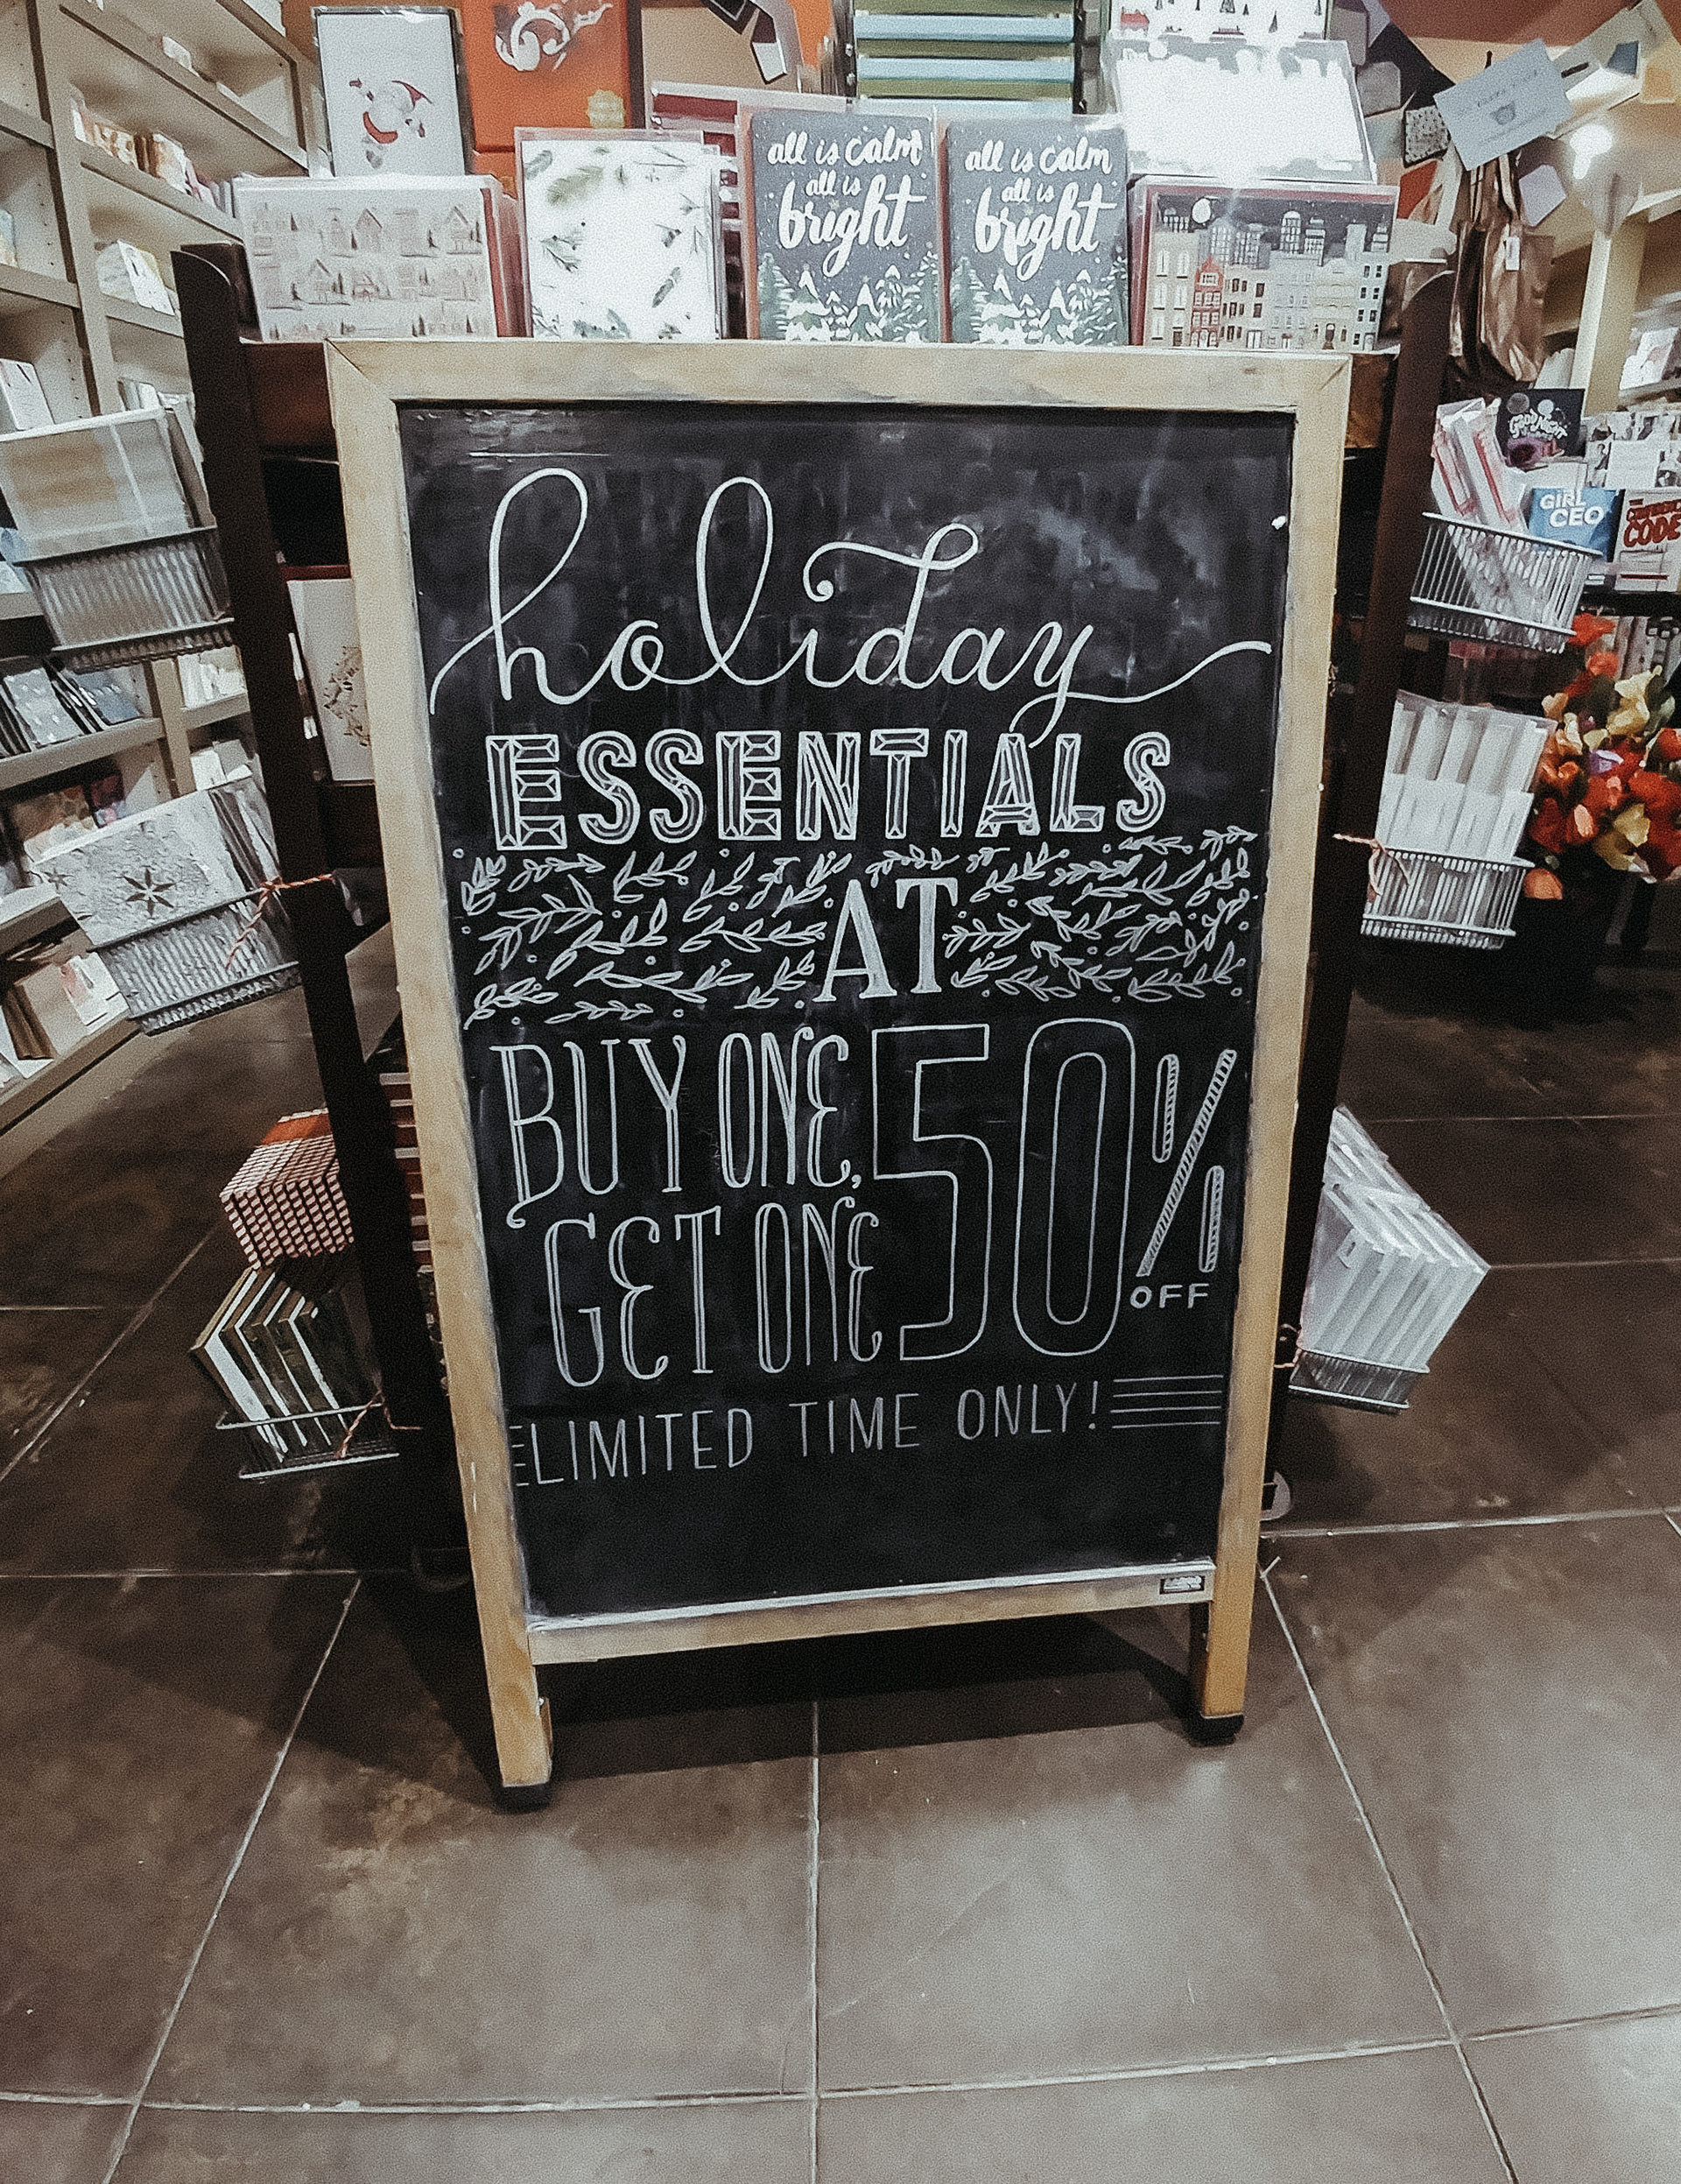 all is calm
all is
bright
all is calm
all is
bright
GIRL
CEO
CODE
holiday
ESSENTIALS
AT
BUY ONE,
GET ONE
50%
OFF
LIMITED TIME ONLY!